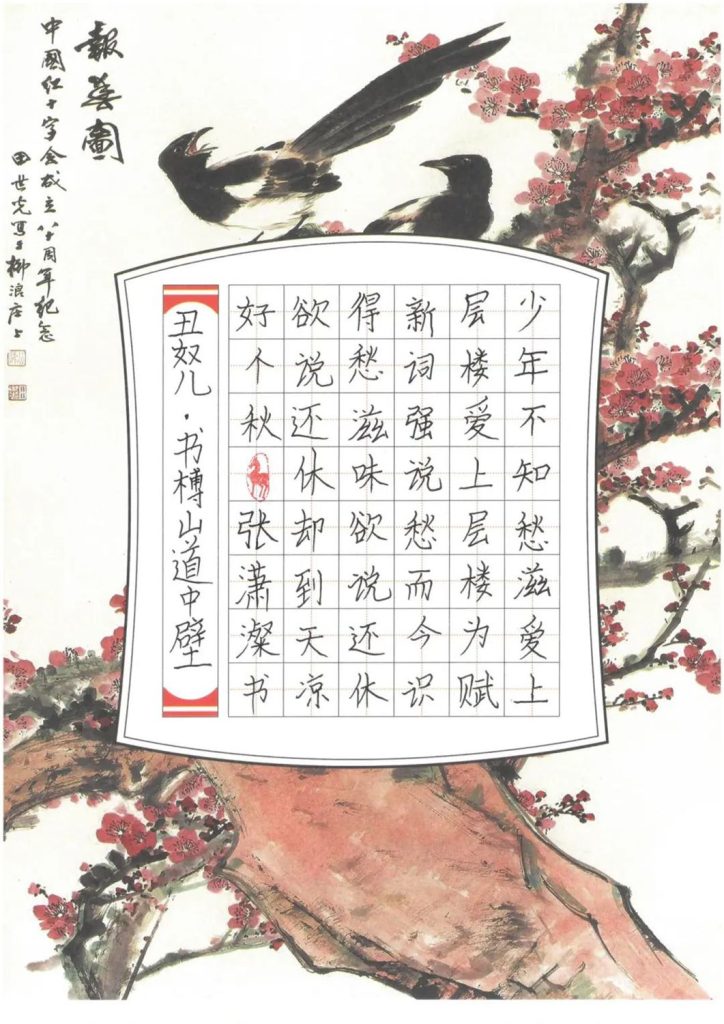 報春圖
中國红十字会成立八十周年纪念
田世光写于柳浪庄上
少年不知愁滋爱上
层楼爱上层楼为赋
新词强说愁而今识
得愁滋味欲说还休
欲说还休却到天凉
好个秋
张潇澯书
丑奴儿·书榑山道中壁